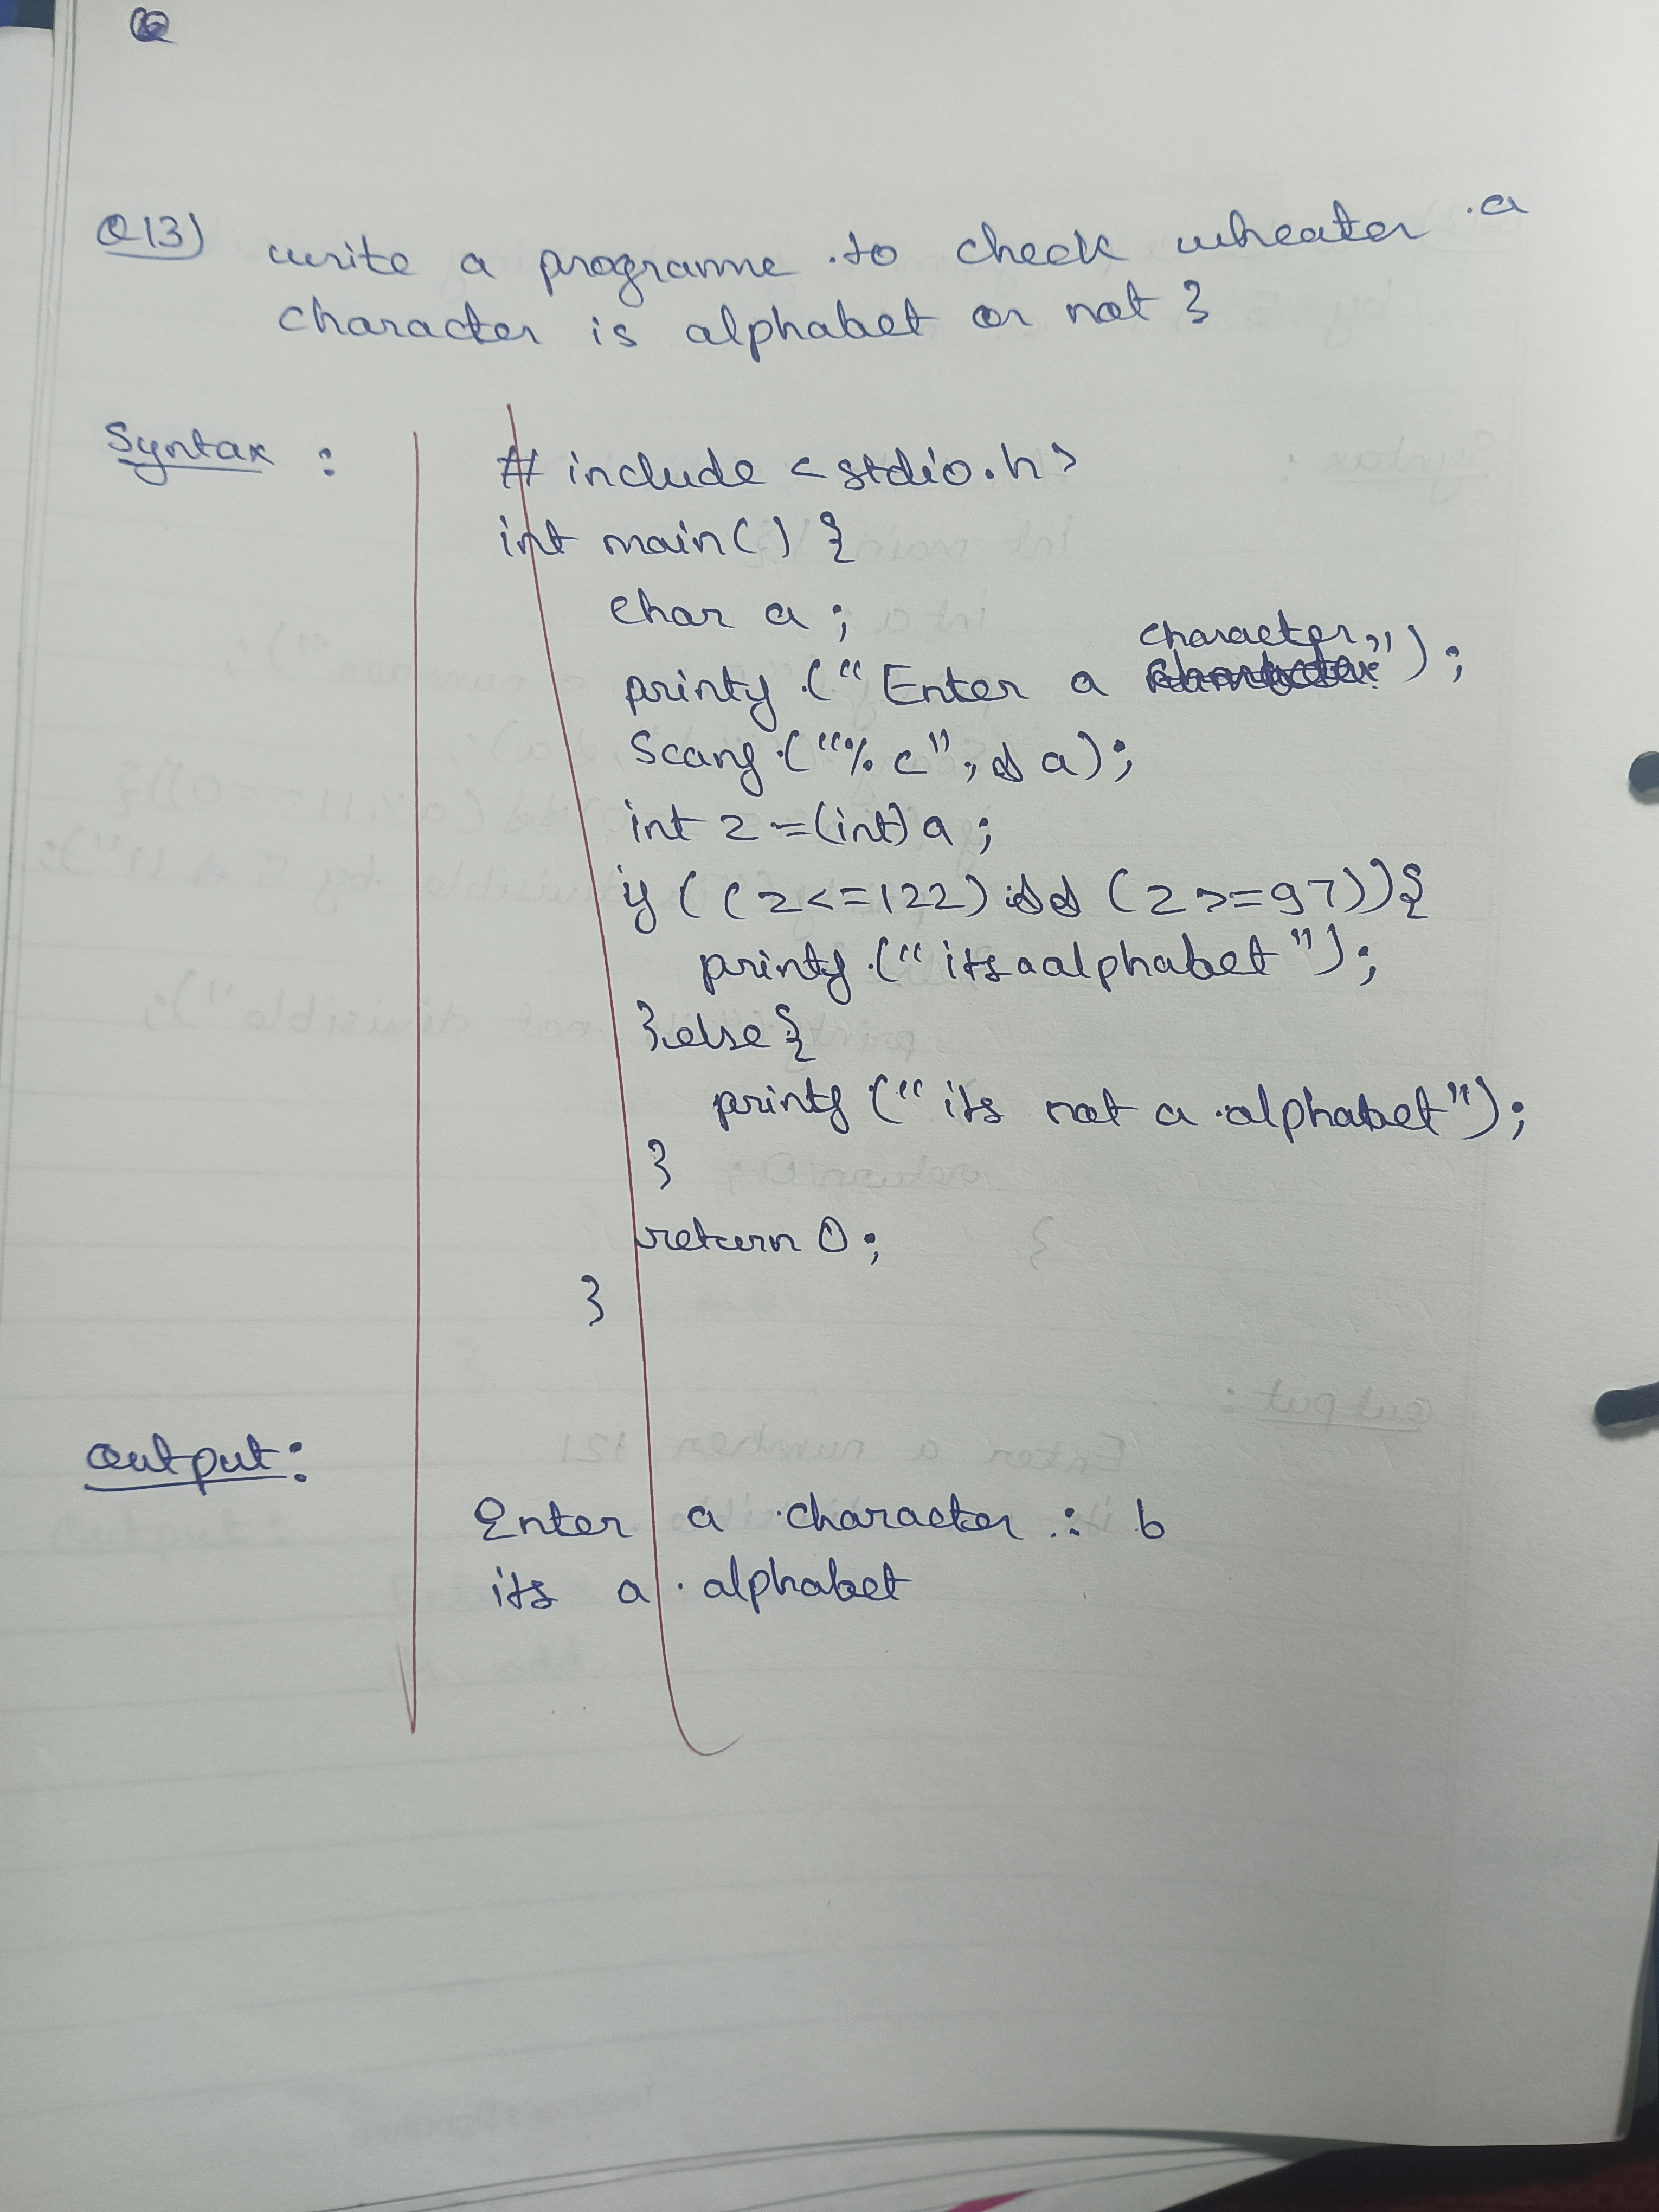 Q13) write a programme to check wheater a
character is alphabet or not ?
Syntax :
# include <stdio.h>
int main() {
char a ;
printf ("Enter a character");
Scanf ("%c", & a);
int z = (int) a ;
if ( ( z <= 122) && ( z >= 97)) {
printf ("its a alphabet");
} else {
printf (" its not a alphabet");
}
return 0 ;
}
output :
Enter a character : b
its a alphabet